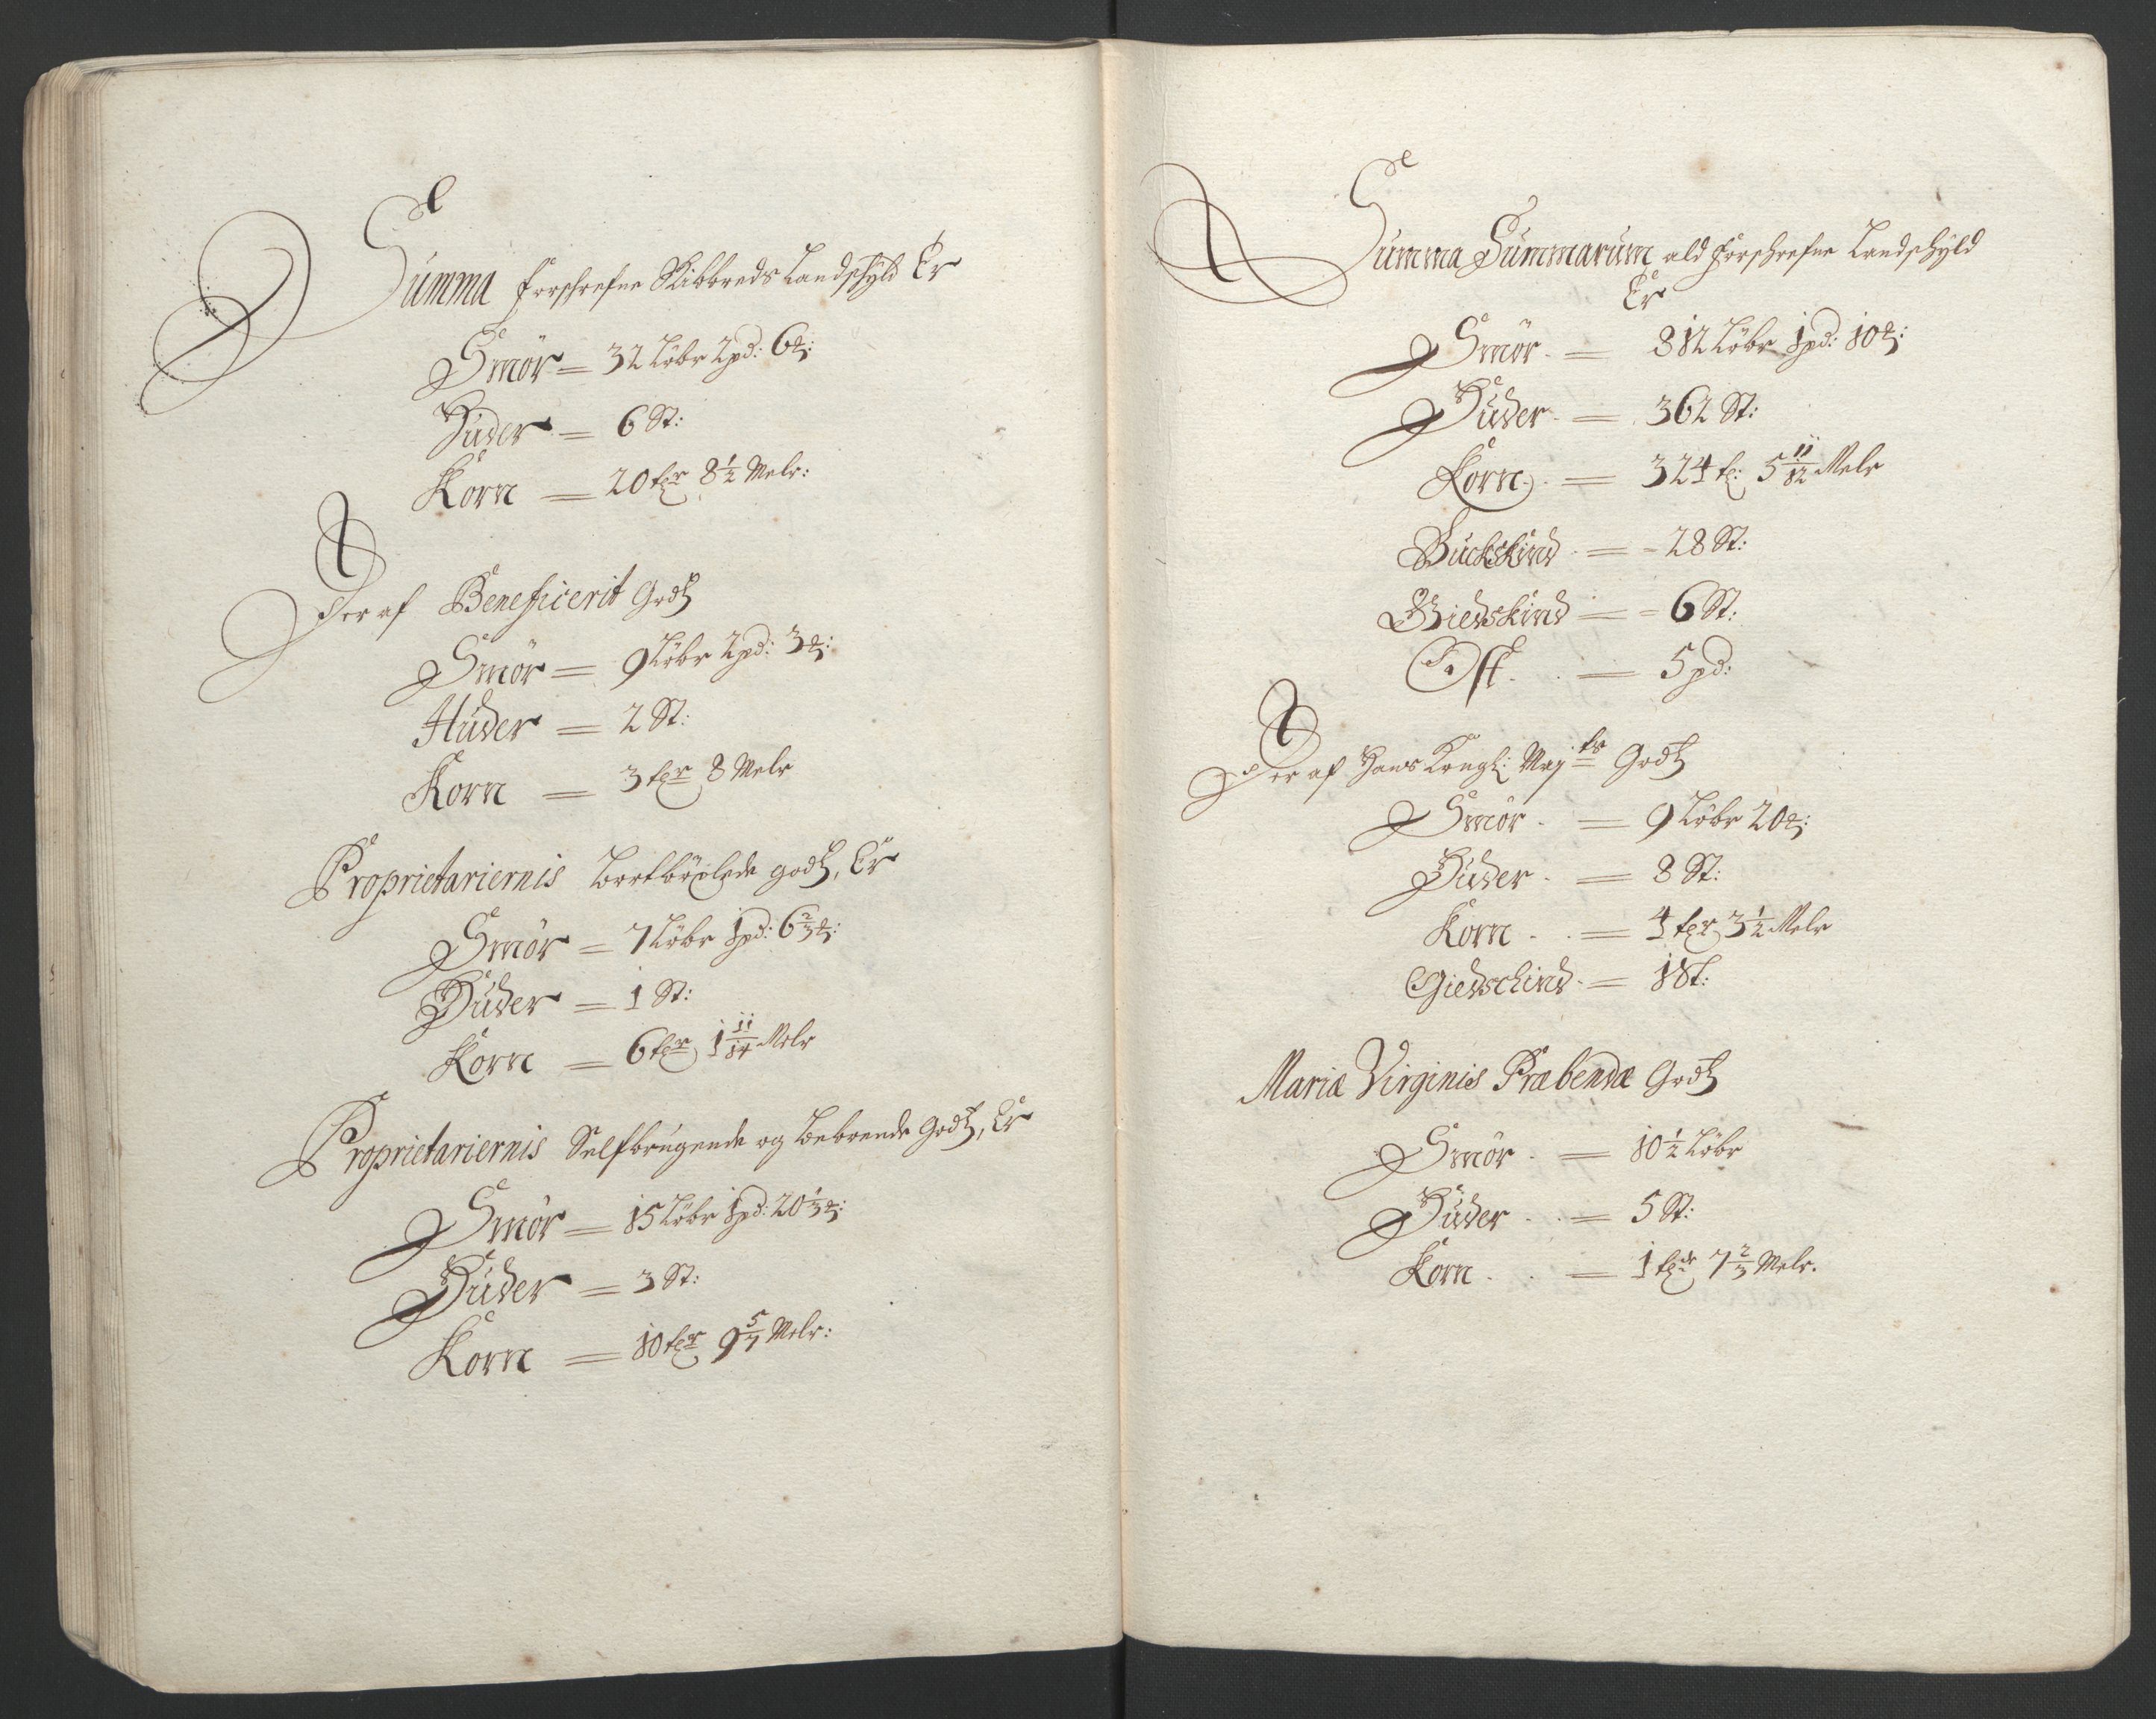 Summa forschrefne Skibbreds Landschÿld Er
Smör = 32 Löbr 2 pd: 6 ℔:
Huder = 6 St:
Korn = 20 tr 8 1/2 Melr:
Der af Beneficerit Godtz
Smör = 9 Löbr 2 pd: 3 ℔:
Huder = 2 St:
Korn = 3 tr 8 Melr
Proprietariernis bortböxlede godtz, Er
Smör = 7 Löbr 1 pd: 6 2/3 ℔:
Huder = 1 St:
Korn = 6 tr 1 11/14 Melr
Proprietariernis Selfbrugende og beboende Godtz, Er
Smör = 15 Löbr 1 pd: 20 1/3 ℔:
Huder = 3 St:
Korn = 10 tr 9 5/7 Melr:
Summa Summarum ald forschrefne Landschÿld
Er
Smör = 812 Löbr 1 pd: 10 ℔:
Huder = 362 St:
Korn = 324 t: 5 11/12 Melr
Buckskind = 28 St:
Giedskind = 6 St:
Ost = 5 pd:
Der af Hans Kongl: Maytz Godtz
Smör = 9 Löbr 20 ℔:
Huder = 8 St:
Korn = 4 tr 3 1/2 Melr
Giedschind = 1 St:
Mariæ Virginis Præbendæ Godtz
Smör = 10 1/2 Löbr
Huder = 5 St:
Korn = 1 tde 7 2/3 Melr.